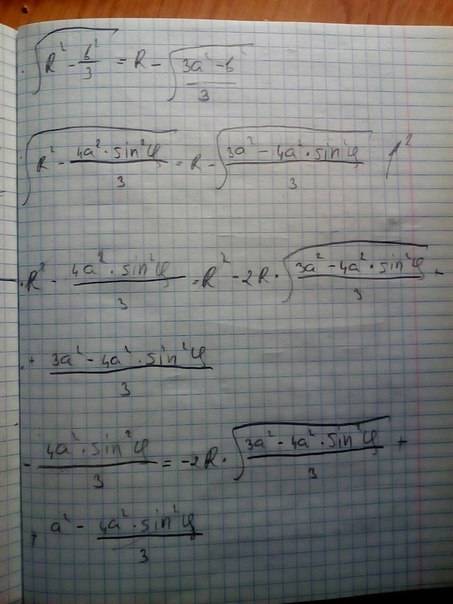 √(R² - b²/3) = R - √((3a² - b²)/3)
√(R² - (4a² · sin²φ)/3) = R - √((3a² - 4a² · sin²φ)/3) ↑²
· R² - (4a² · sin²φ)/3 = R² - 2R · √((3a² - 4a² · sin²φ)/3) +
+ (3a² - 4a² · sin²φ)/3
- (4a² · sin²φ)/3 = -2R · √((3a² - 4a² · sin²φ)/3) +
+ a² - (4a² · sin²φ)/3